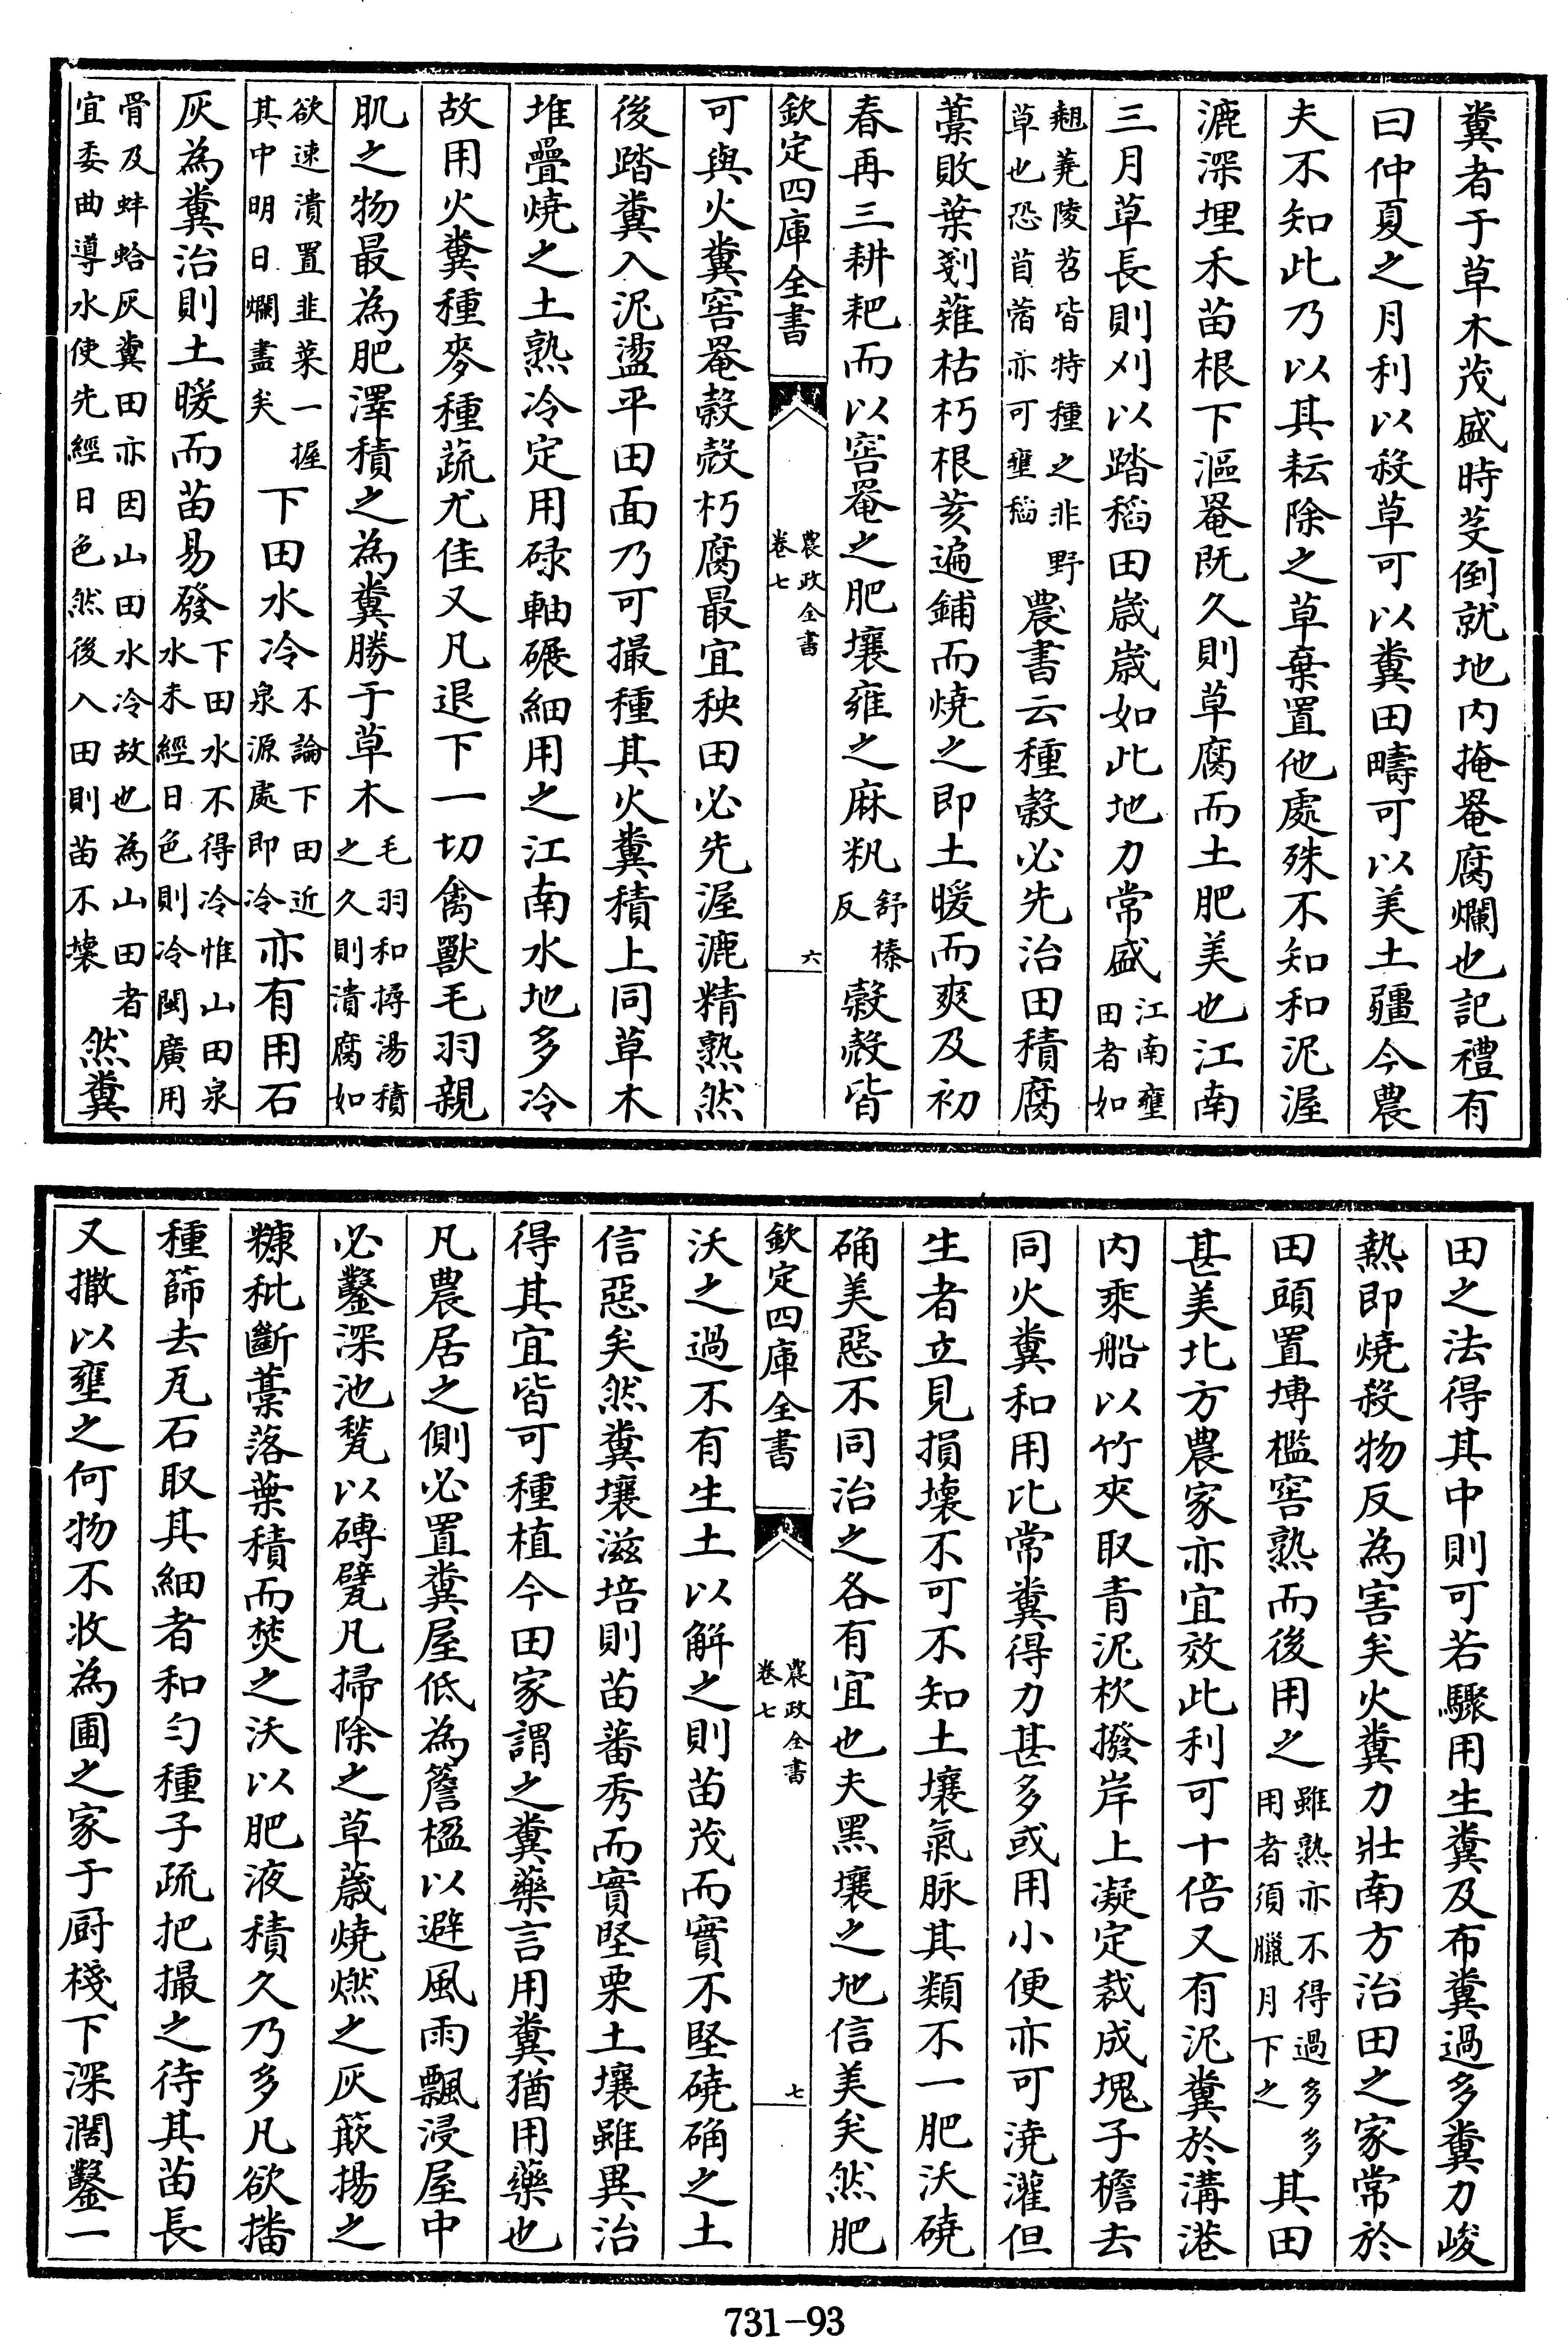 糞者于草木茂盛時芟倒就地内掩罨腐爛也記禮有
曰仲夏之月利以殺草可以糞田疇可以美土疆今農
夫不知此乃以其耘除之草棄置他處殊不知和泥渥
漉深埋禾苗根下漚罨既久則草腐而土肥美也江南
三月草長則刈以踏稻田嵗嵗如此地力常盛江南壅田者如
翹蕘陵苕皆特種之非野草也恐苜蓿亦可壅稻農書云種糓必先治田積腐
藁敗葉剗薙枯朽根荄遍鋪而燒之即土暖而爽及初
春再三耕耙而以窖罨之肥壤雍之麻籸舒榛反糓殻皆
欽定四庫全書
農政全書
卷七
六
可與火糞窖罨糓殻朽腐最宜秧田必先渥漉精熟然
後踏糞入泥盪平田面乃可撮種其火糞積上同草木
堆疊燒之土熟冷定用碌軸碾細用之江南水地多冷
故用火糞種麥種蔬尤佳又凡退下一切禽獸毛羽親
肌之物最為肥澤積之為糞勝于草木毛羽和撏湯積之久則潰腐如
欲速潰置韭菜一握其中明日爛盡矣下田水冷不論下田近泉源處即冷亦有用石
灰為糞治則土暖而苗易發下田水不得冷惟山田泉水未經日色則冷閩廣用
骨及蚌蛤灰糞田亦因山田水冷故也為山田者宜委曲導水使先經日色然後入田則苗不壞然糞
田之法得其中則可若驟用生糞及布糞過多糞力峻
熱即燒殺物反為害矣火糞力壯南方治田之家常於
田頭置塼檻窖熟而後用之雖熟亦不得過多多用者須臘月下之其田
甚美北方農家亦宜效此利可十倍又有泥糞於溝港
内乘船以竹夾取青泥杴撥岸上凝定裁成塊子檐去
同火糞和用比常糞得力甚多或用小便亦可澆灌但
生者立見損壞不可不知土壤氣脉其類不一肥沃磽
确美惡不同治之各有宜也夫黑壤之地信美矣然肥
欽定四庫全書
農政全書
卷七
七
沃之過不有生土以解之則苗茂而實不堅磽确之土
信惡矣然糞壤滋培則苗蕃秀而實堅栗土壤雖異治
得其宜皆可種植今田家謂之糞藥言用糞猶用藥也
凡農居之側必置糞屋低為簷楹以避風雨飄浸屋中
必鑿深池甃以磚甓凡掃除之草薉燒燃之灰簸揚之
糠秕斷藁落葉積而焚之沃以肥液積久乃多凡欲播
種篩去瓦石取其細者和勻種子疏把撮之待其苗長
又撒以壅之何物不收為圃之家于厨棧下深濶鑿一
731-93